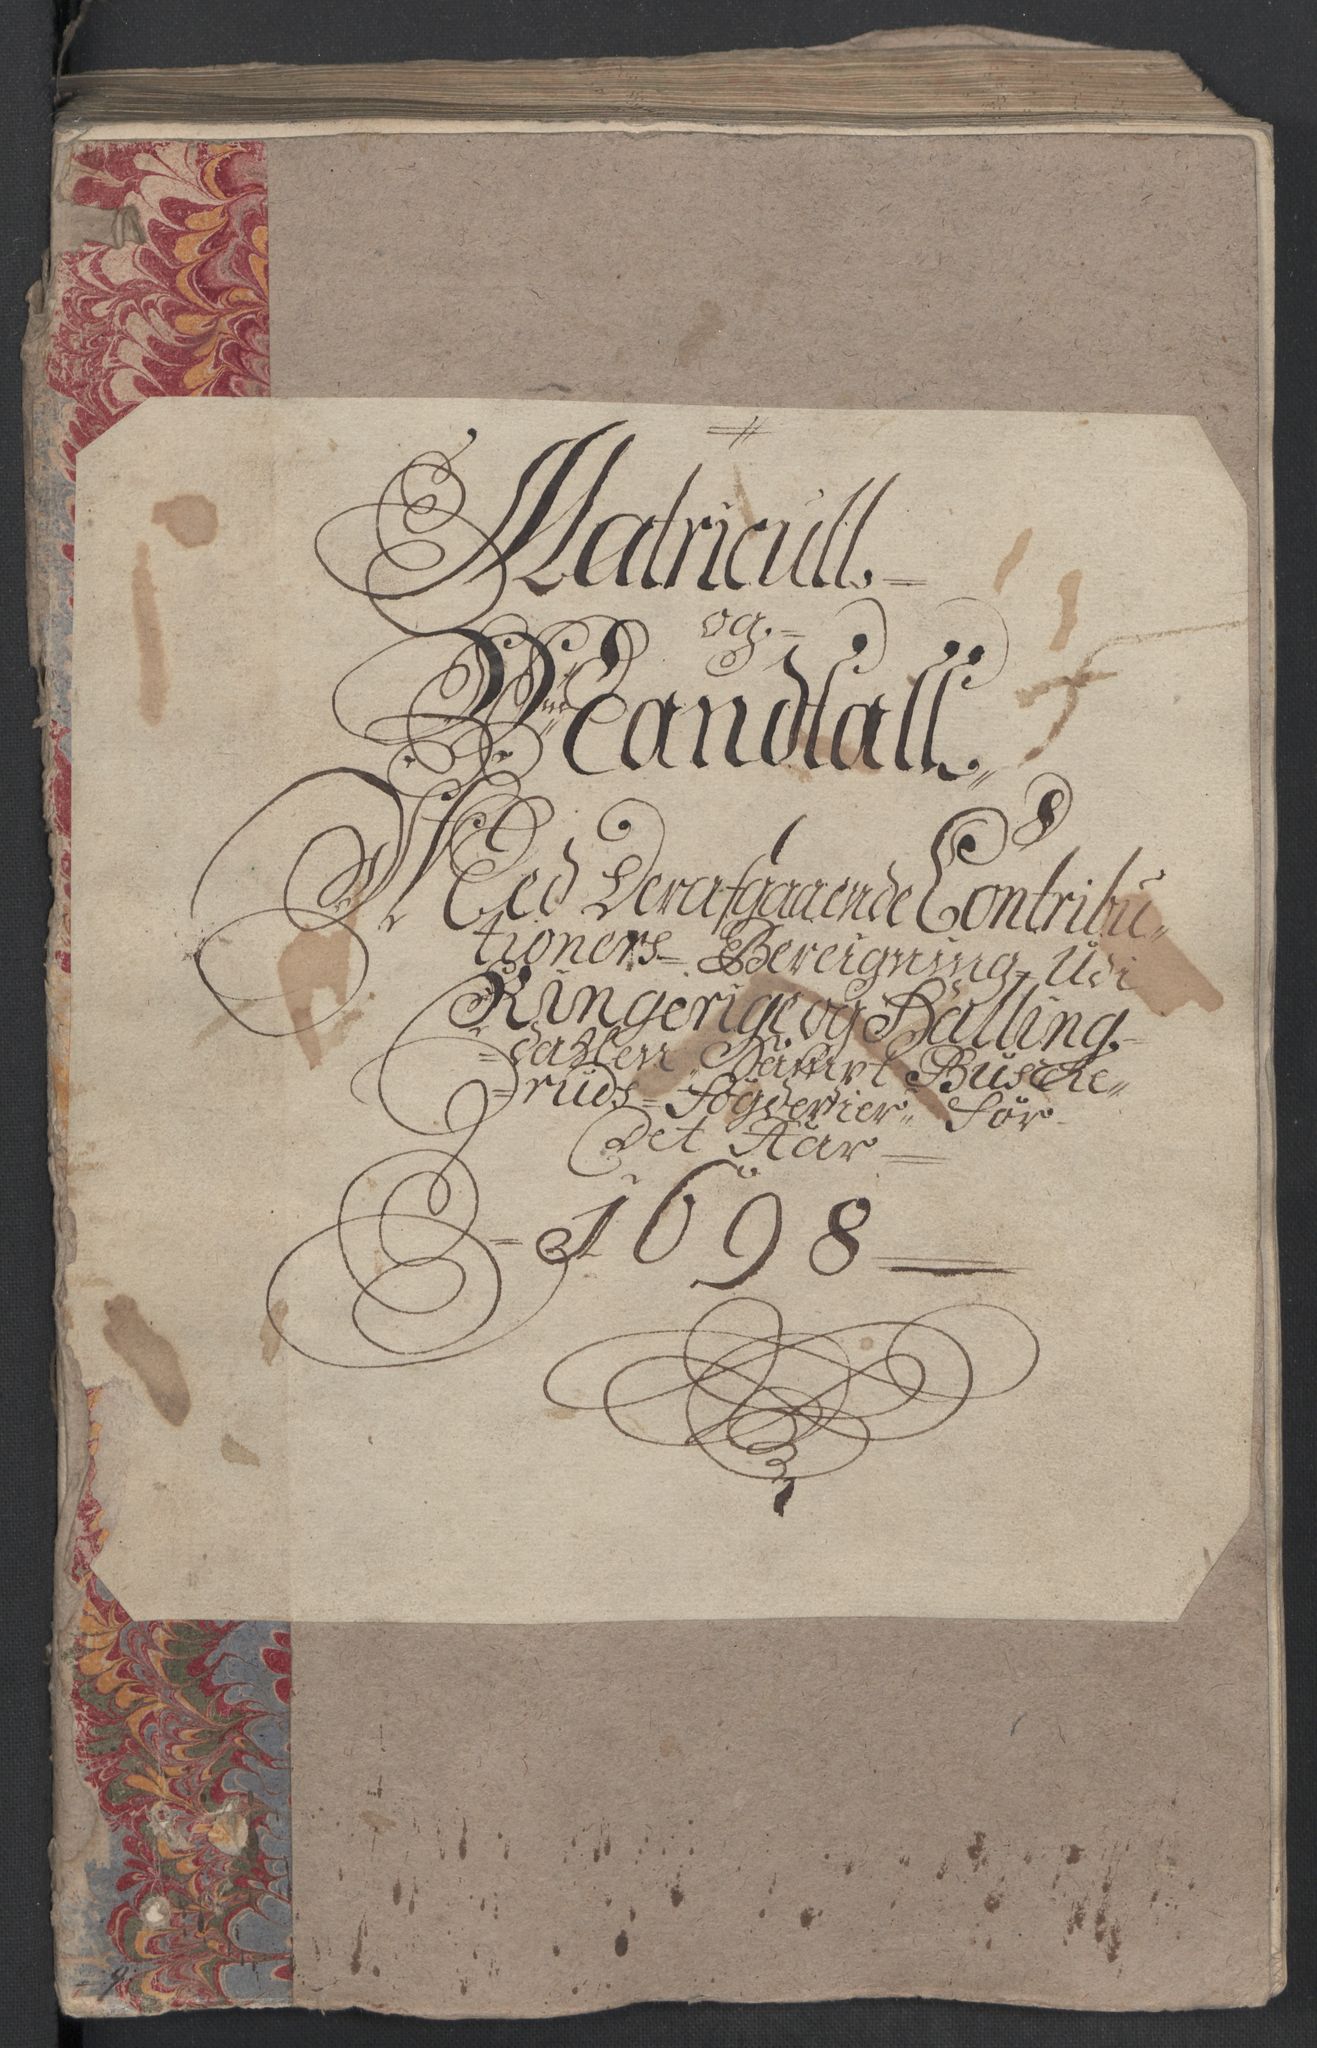 Matricull.
og
Mandtall.
Med Derafgaaende Contribu-
tioners Bereigning Udi
Ringerige og Halling-
dahlen Sampt Busche-
ruds Fogderier for
Det Aar
1698
9